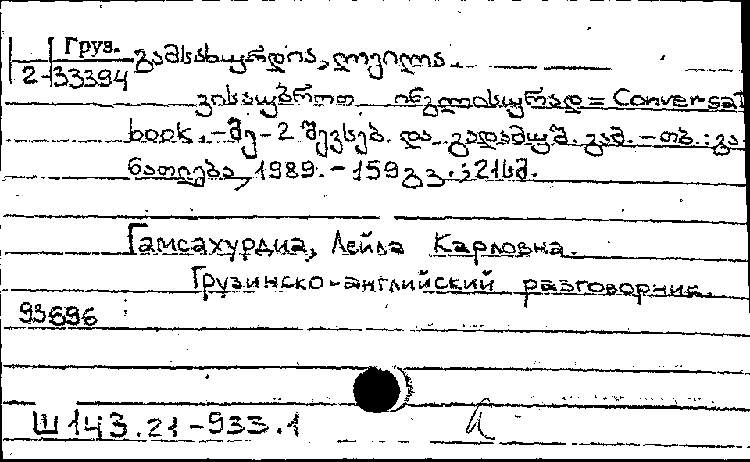 Груз.
2-33394
გამსახურდია, ლეილა.
ვისაუბროთ ინგლისურად = Conversat
book. - მე-2 შევსებ. და გადამუშ. გამ. - თბ.: გა
ნათლება, 1989. - 159 გვ.; 21 სმ.
Гамсахурдиа, Лейла Карловна.
Грузинско-английский разговорник.
93696
Ш143.21-933.1